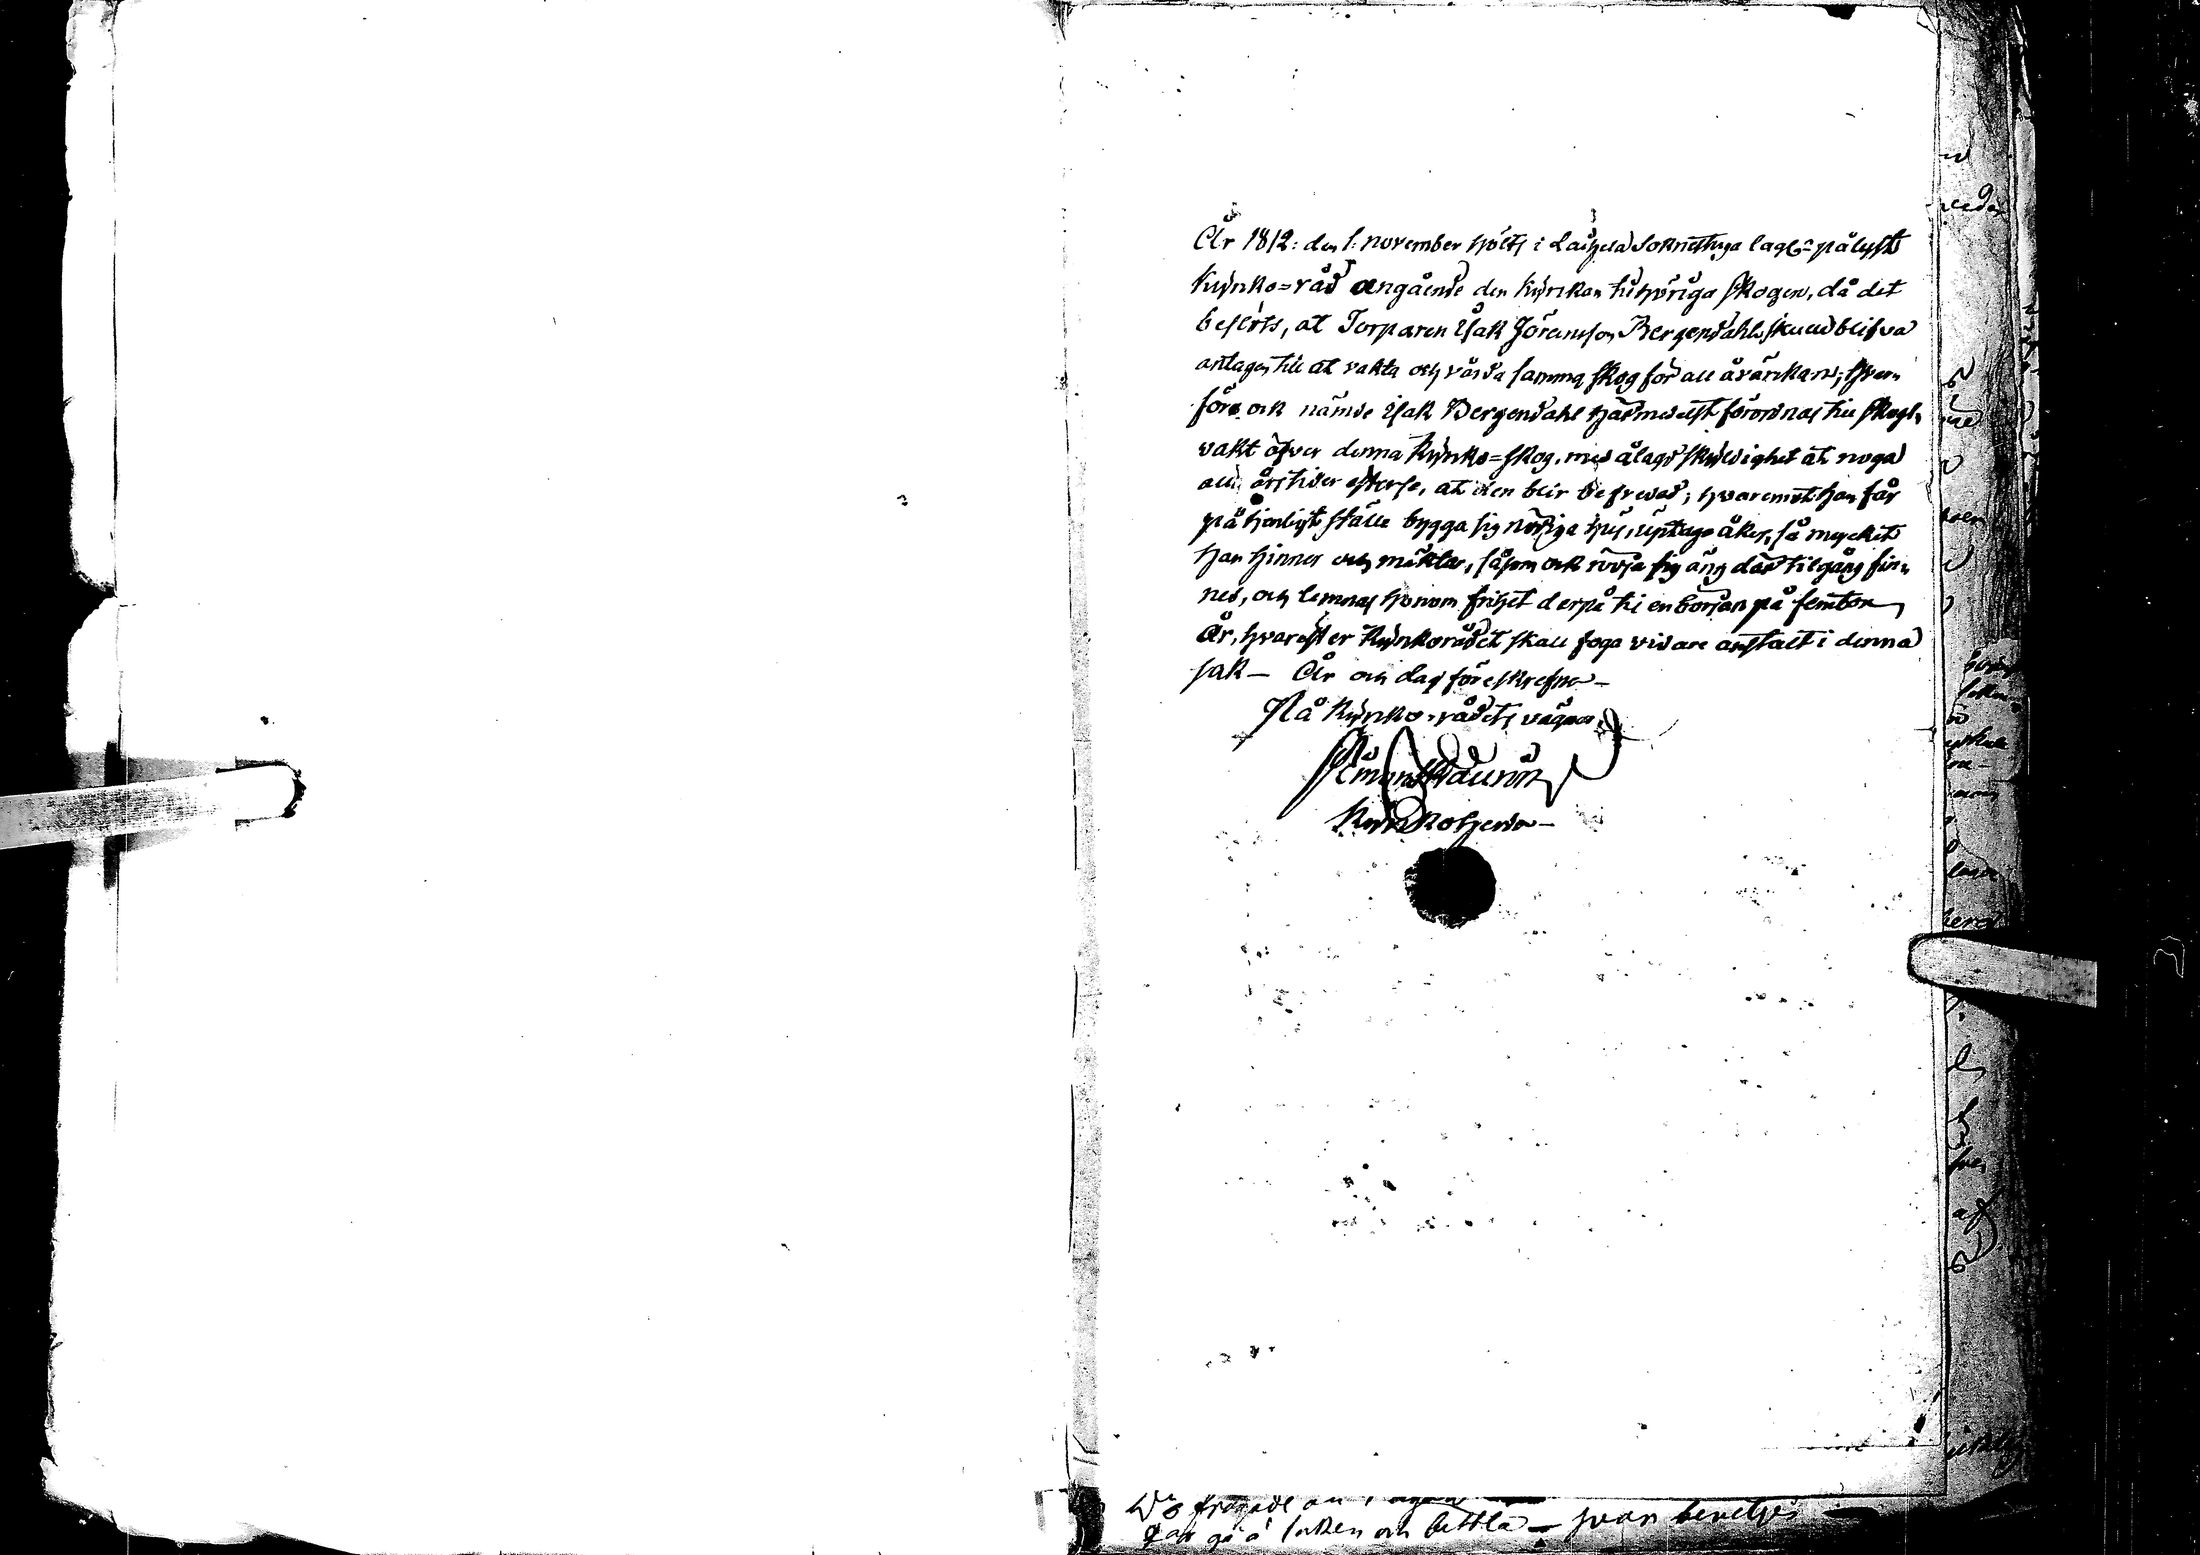 År 1812: den 1: november hölts i Laihela Soknestuga lagl: pålyst
Kyrko=råd angående den kyrkan tilhöriga skogen, då det
beslöts, at Torparen Isak Jöransson Bergendahl skulle blifva
antagen till at vakta och vårda samma skog för all åvärkan; hvar¬
före ock nämde Isak Bergendahl härmedelst förordnas till skogs
vakt öfver denna Kyrko=skog, med ålagd skyldighet at noga
alla årstider efterse, at den blir befredad; hvaremot han får
på tjenligt ställe bygga sig nödiga hus, uptaga åker, så mycket
han hinner och mäktar, såsom ock rödja sig äng där tilgång fin¬
nes, och lemnas honom frihet derpå til en början på femton
År, hvarefter Kyrkorådet skall foga vidare anstalt i denna
sak — År och dag föreskrefne —
På Kyrko-rådets vägnar
Kyrkoherde —
frågade
gå å socken och bettla — hvar